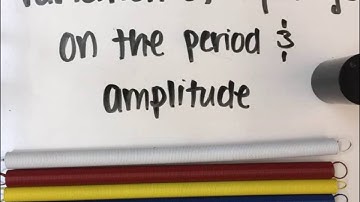 on the period &
amplitude